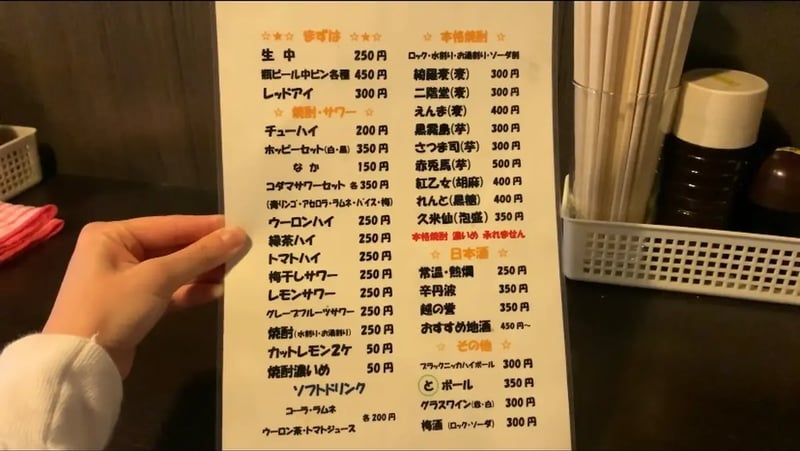 ☆★☆ まずは ☆★☆
生 中 250円
瓶ビール中ビン各種 450円
レッドアイ 300円
☆ 焼酎・サワー ☆
チューハイ 200円
ホッピーセット(白・黒) 350円
なか 150円
コダマサワーセット 各350円
(青リンゴ・アセロラ・ラムネ・バイス・梅)
ウーロンハイ 250円
緑茶ハイ 250円
トマトハイ 250円
梅干しサワー 250円
レモンサワー 250円
グレープフルーツサワー 250円
焼酎(水割り・お湯割り) 250円
カットレモン2ケ 50円
焼酎濃いめ 50円
ソフトドリンク
コーラ・ラムネ
各200円
ウーロン茶・トマトジュース
☆ 本格焼酎 ☆
ロック・水割り・お湯割り・ソーダ割
綾羅麦(麦) 300円
二階堂(麦) 300円
えんま(麦) 400円
黒霧島(芋) 300円
さつま司(芋) 300円
赤兎馬(芋) 500円
紅乙女(胡麻) 400円
れんと(黒糖) 400円
久米仙(泡盛) 350円
本格焼酎 濃いめ 承れません
☆ 日本酒 ☆
常温・熱燗 250円
辛丹波 350円
越の誉 350円
おすすめ地酒 450円~
☆ その他 ☆
ブラックニッカハイボール 300円
と ボール 350円
グラスワイン(赤・白) 300円
梅酒 (ロック・ソーダ) 300円